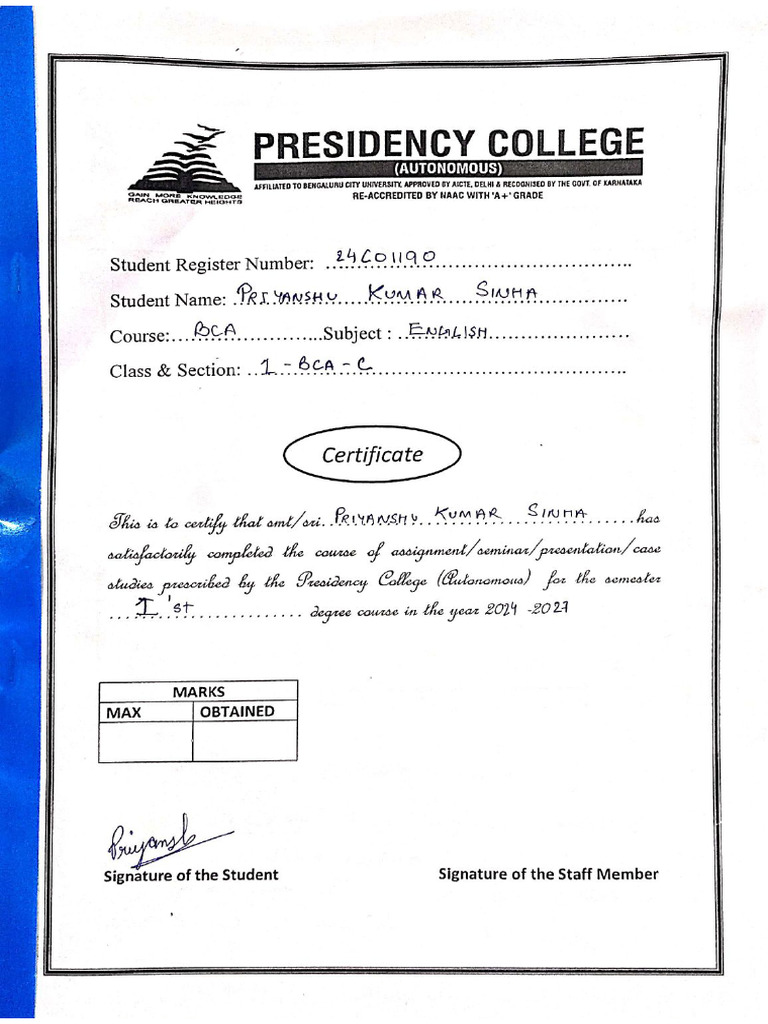 GAIN MORE KNOWLEDGE
REACH GREATER HEIGHTS
PRESIDENCY COLLEGE
(AUTONOMOUS)
AFFILIATED TO BENGALURU CITY UNIVERSITY, APPROVED BY AICTE, DELHI & RECOGNISED BY THE GOVT. OF KARNATAKA
RE-ACCREDITED BY NAAC WITH 'A+' GRADE
Student Register Number: 24C01190
Student Name: PRIYANSHU KUMAR SINHA
Course: BCA Subject : ENGLISH
Class & Section: 1 - BCA - C
Certificate
This is to certify that smt/sri. PRIYANSHU KUMAR SINHA has
satisfactorily completed the course of assignment/seminar/presentation/case
studies prescribed by the Presidency College (Autonomous) for the semester
I'st degree course in the year 2024 -2027
MARKS
MAX OBTAINED
Priyansh
Signature of the Student Signature of the Staff Member